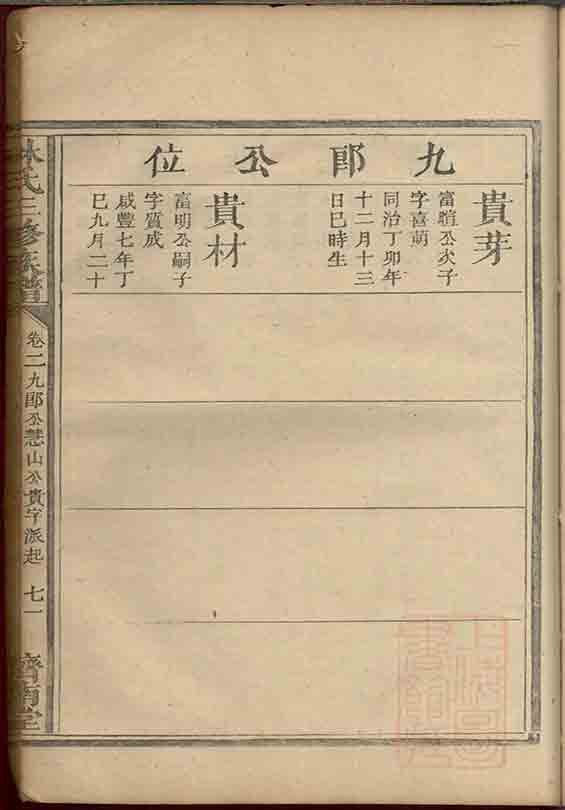 九郎公位
貴芽
富瑄公次子
字喜萌
同治丁卯年
十二月十三
日巳時生
貴材
富明公嗣子
字質成
咸豐七年丁
巳九月二十
林氏三修族譜
卷二九郎公慧山公貴字派起
七一
濟南堂